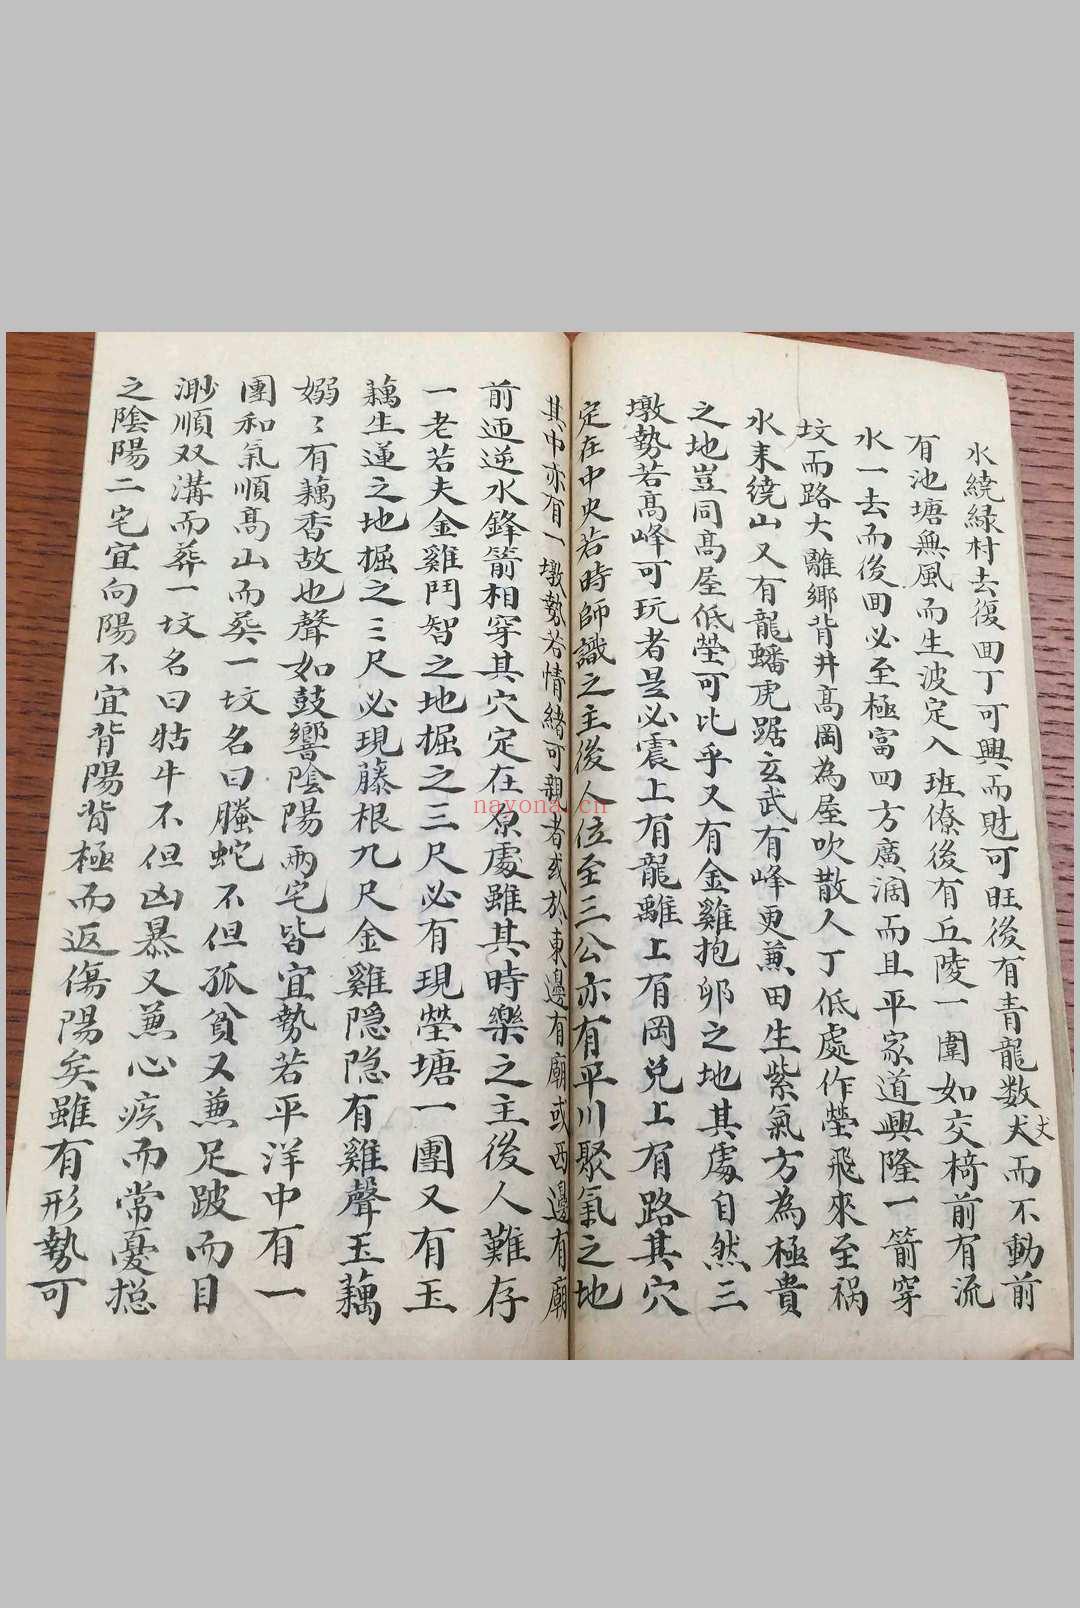 水繞緑村去復囬丁可興而財可旺後有青龍数犬丈而不動前
有池塘無風而生波定入班僚後有丘陵一圍如交椅前有流
水一去而後囬必至極富四方廣濶而且平家道興隆一箭穿
坟而路大離鄉背井髙岡為屋吹散人丁低處作塋飛來至禍
水来繞山又有龍蟠虎踞玄武有峰更兼田生紫氣方為極貴
之地豈同髙屋低塋可比乎又有金雞抱卵之地其處自然三
墩勢若髙峰可玩者是必震上有龍離上有岡兑上有路其穴
定在中央若時師識之主後人位至三公亦有平川聚氣之地
其中亦有一墩勢若情緒可親者或於東邊有廟或西邊有廟
前迊逆水鋒箭相穿其穴定在原處雖其時樂之主後人難存
一老若夫金雞鬥智之地掘之三尺必有現塋塘一團又有玉
藕生蓮之地掘之三尺必現藤根九尺金雞隠隐有雞聲玉藕
嫋〻有藕香故也聲如鼓響陰陽兩宅皆宜勢若平洋中有一
團和氣順髙山而葬一坟名曰螣蛇不但孤貧又兼足跛而目
渺順双溝而葬一坟名曰牯牛不但凶暴又兼心疾而常憂揔
之陰陽二宅宜向陽不宜背陽背極而返傷陽矣雖有形勢可
nayona.cn